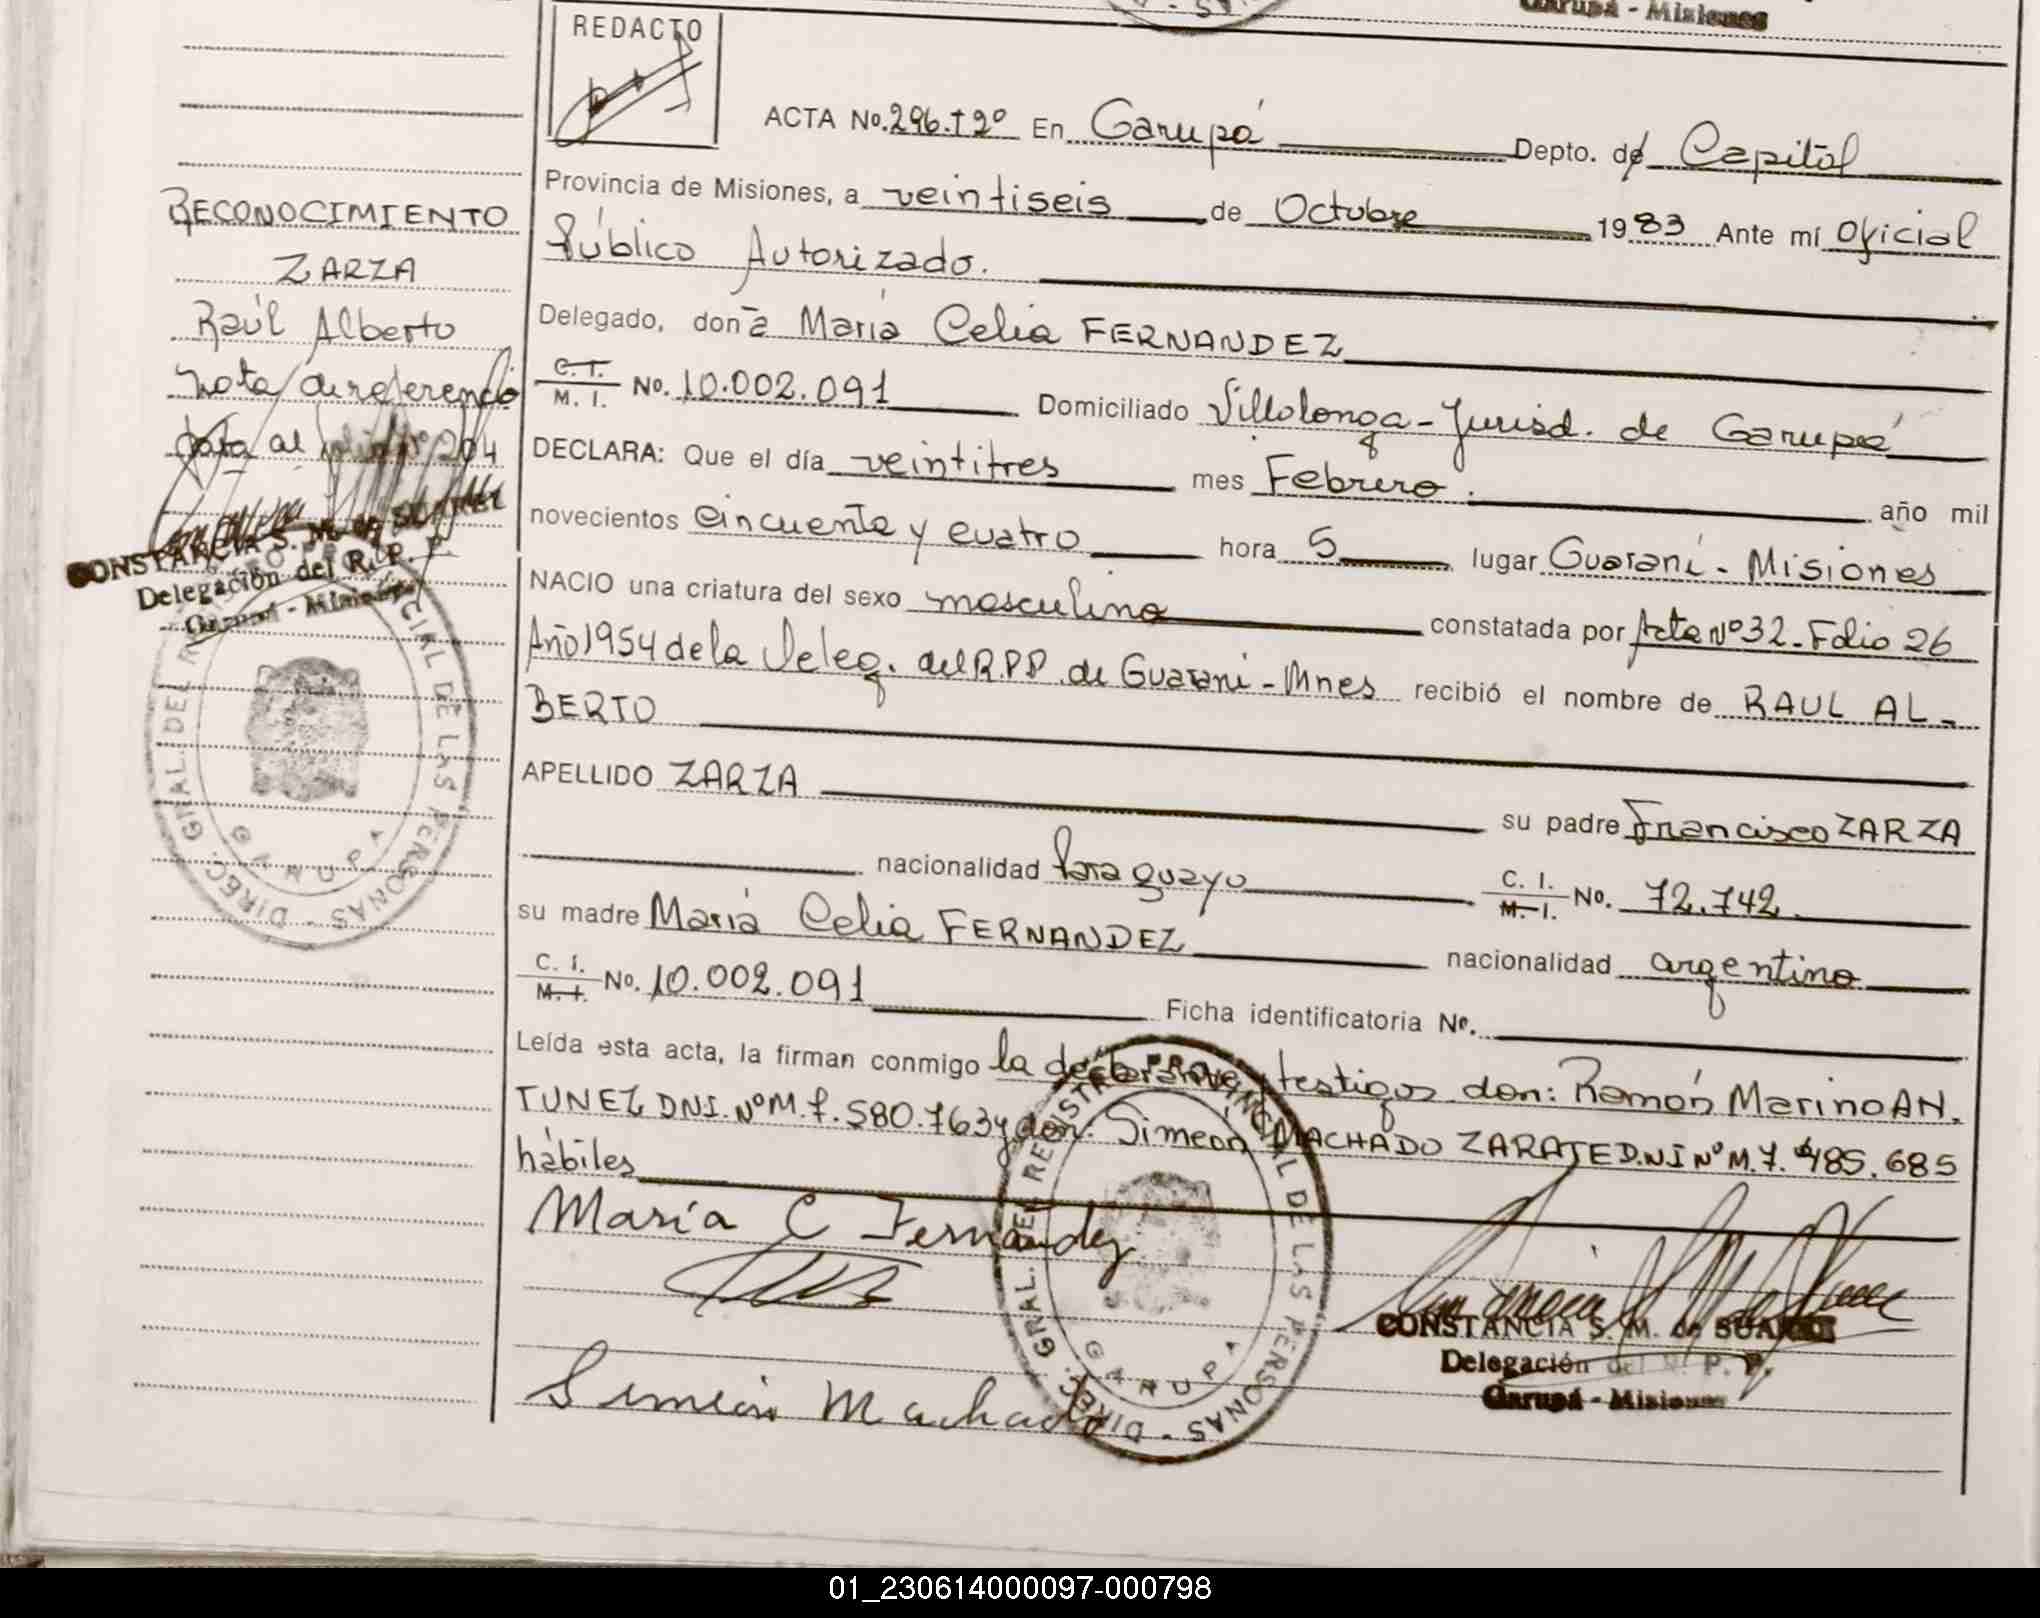 Garupá - Misiones
REDACTO
ACTA No. 296. Tº 2º En Garupá Depto. de Capital
Provincia de Misiones, a veintiseis de Octubre 1983 Ante mí Oficial
Público Autorizado.
Delegado, don ª María Celia FERNANDEZ
C. I. M. I. No. 10.002.091 Domiciliado Villalonga - Jurisd. de Garupá
DECLARA: Que el día veintitres mes Febrero. año mil
novecientos cincuenta y cuatro hora 5 lugar Guaraní - Misiones
NACIO una criatura del sexo masculino constatada por Acta Nº 32 - Folio 26
Año 1954 de la Deleg. del R.P.P. de Guaraní - Mnes recibió el nombre de RAUL AL-
BERTO
APELLIDO ZARZA su padre Francisco ZARZA
nacionalidad Paraguayo C. I. M. I. No. 72.742
su madre María Celia FERNANDEZ nacionalidad argentina
C. I. M. I. No. 10.002.091 Ficha identificatoria No.
Leída esta acta, la firman conmigo la testigos don: Ramón Marino AN.
TUNEZ DNI. Nº M.7.580.763 y don: Simeón MACHADO ZARATE D.N.I Nº M.7.485.685
hábiles
María C Fernandez
Simeón Machado
CONSTANCIA S. M. de SUAREZ
Delegación del R. P. P.
Garupá - Misiones
DIREC. GRAL. DEL REGISTRO PROVINCIAL DE LAS PERSONAS -
GARUPA
RECONOCIMIENTO
ZARZA
Raúl Alberto
Nota de referencia
al 204
CONSTANCIA S. M. de SUAREZ
Delegación del R. P. P.
Garupá - Misiones
DIREC. GRAL. DEL CIAL DE LAS PERSONAS -
GARUPA
01_230614000097-000798